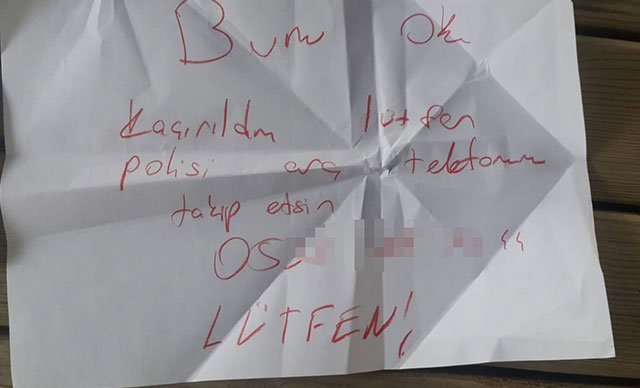 Bunu Oku
Kaçırıldım lütfen
polisi ara telefonumu
takip etsin
05 44
LÜTFEN!